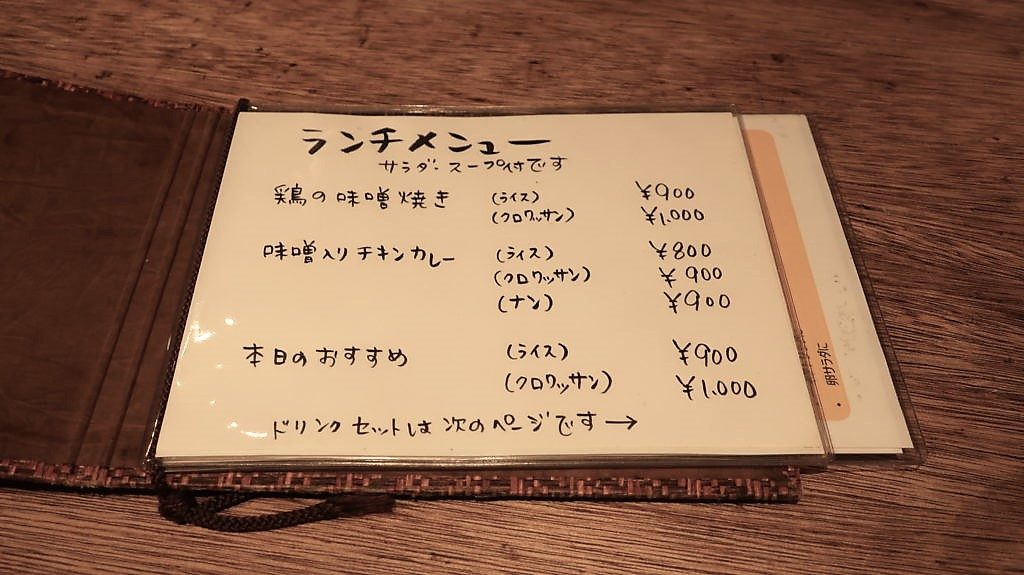 ランチメニュー
サラダ・スープ付です
鶏の味噌焼き (ライス) ¥900
(クロワッサン) ¥1,000
味噌入りチキンカレー (ライス) ¥800
(クロワッサン) ¥900
(ナン) ¥900
本日のおすすめ (ライス) ¥900
(クロワッサン) ¥1,000
ドリンクセットは次のページです→